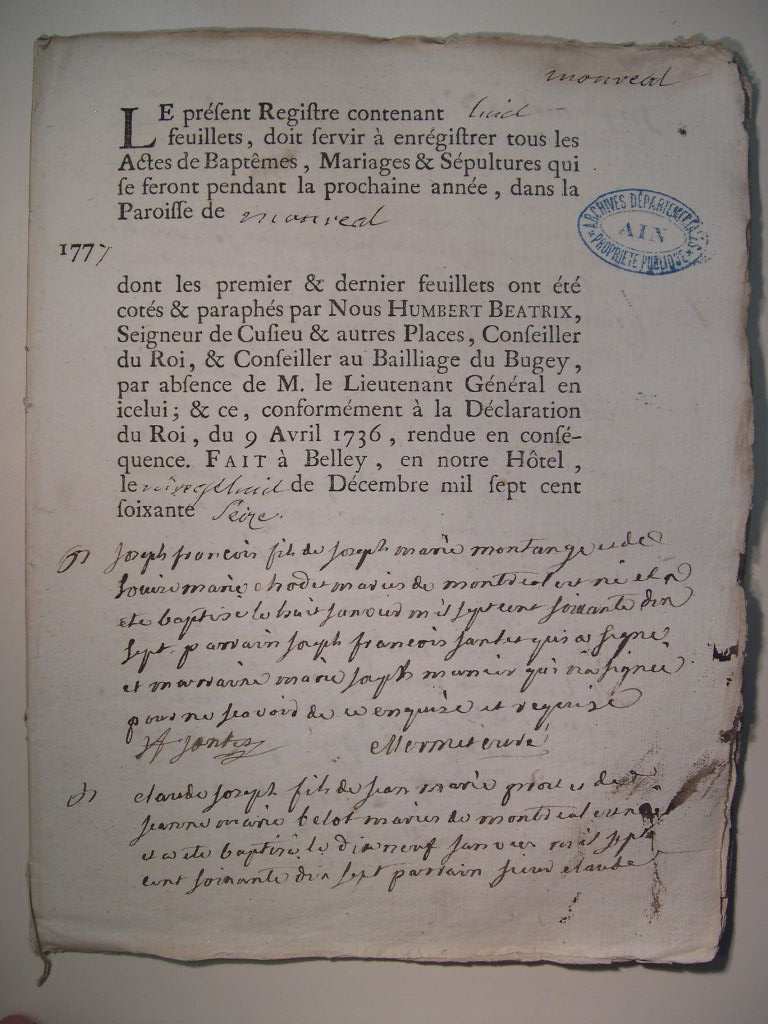 monreal
LE préſent Regiſtre contenant huit
feuillets, doit ſervir à enrégiſtrer tous les
Actes de Baptêmes, Mariages & Sépultures qui
ſe feront pendant la prochaine année, dans la
Paroiſſe de monreal
ARCHIVES DÉPARTEMENTALES
AIN
PROPRIÉTÉ PUBLIQUE
1777
dont les premier & dernier feuillets ont été
cotés & paraphés par Nous HUMBERT BEATRIX,
Seigneur de Cuſieu & autres Places, Conſeiller
du Roi, & Conſeiller au Bailliage du Bugey,
par abſence de M. le Lieutenant Général en
icelui; & ce, conformément à la Déclaration
du Roi, du 9 Avril 1736, rendue en conſé-
quence. FAIT à Belley, en notre Hôtel,
le vingt huit de Décembre mil ſept cent
ſoixante Seize.
joseph francois fils de joseph marie montange et de
louise marie chodet mariés de montreal est né et a
ete baptise le huit janvier mil sept cent soixante dix
sept. parrain joseph francois jantet qui a signé
et marraine marie joseph qui n'a signée
pour ne scavoir de ce enquise et requise
claude joseph fils de jean marie et de
jeanne marie belot mariés de montreal est né
et a ete baptisé le dix neuf janvier mil sept
cent soixante dix sept parrain sieur claude